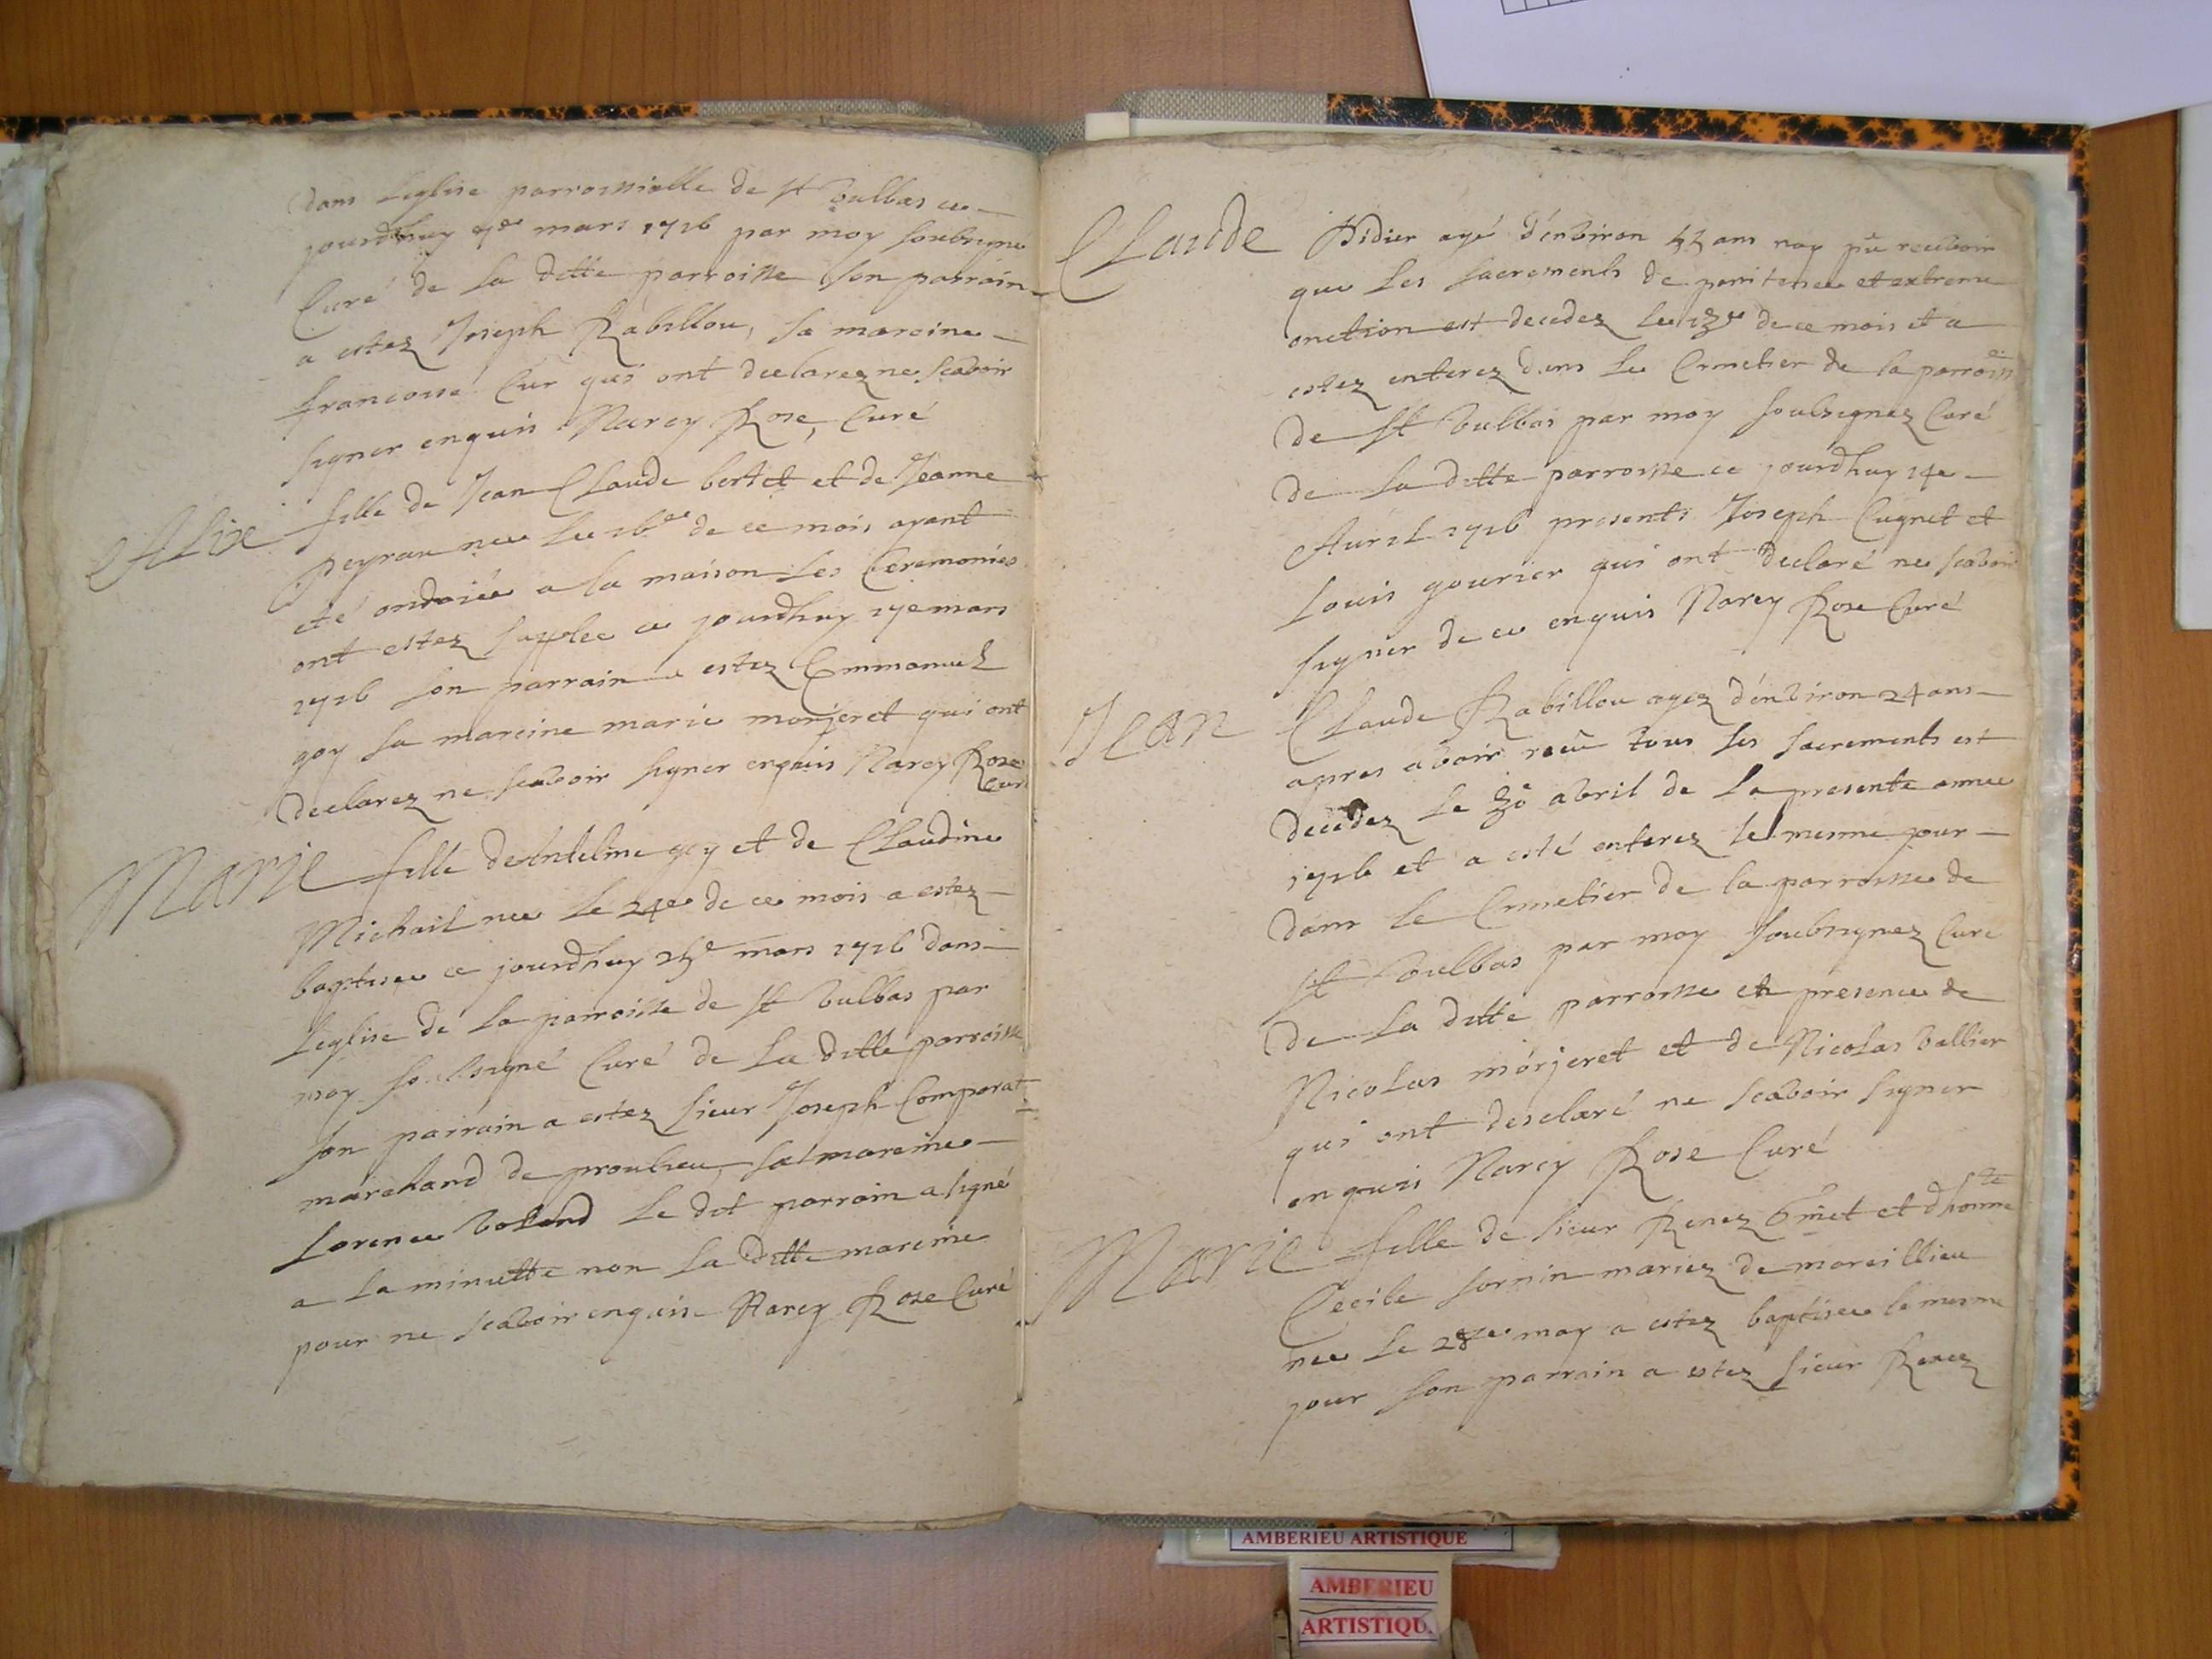 dans Leglise parroissialle de St Vulbas ce
jourdhuy 7e mars 1716 par moy soubsigne
Curé de la ditte parroisse son parrain
a estez Joseph Rabillou, sa mareine
francoise Cur qui ont declarez ne scavoir
signer enquis Narcy Rose, Curé
Alix fille de Jean Claude bertet et de Jeanne
Peyrau nee le 16e de ce mois ayant
eté ondoiée a la maison les Ceremonies
ont estez supplee ce jourdhuy 17e mars
1716 son parrain a estez Emmanuel
goy sa mareine marie morjeret qui ont
declarez ne scavoir signer enquis Narcy Rose
Curé
Marie fille de Antelme goy et de Claudine
Michail nee le 24e de ce mois a estez
baptisee ce jourdhuy 25e mars 1716 dans
Leglise de la parroisse de St Vulbas par
moy soubsigné Curé de la ditte parroisse
son parrain a estez sieur Joseph Comparat
marchand de proulieu, sa mareine
Lorence Voland le dit parrain a signé
a la minutte non la ditte mareine
pour ne scavoir enquise Narcy Rose Curé
Claude Didier agé d'environ 45 ans nay pû recevoir
que les sacrements de penitence et extreme
onction est decedez le 13e de ce mois et a
estez enterez dans le Cimetier de la parroisse
de St Vulbas par moy soubsignez Curé
de la ditte parroisse ce jourdhuy 14e
Avril 1716 presents Joseph Cugnet et
Louis gourier qui ont declaré ne scavoir
signer de ce enquis Narcy Rose Curé
Jean Claude Rabillou agez d'environ 24 ans
apres avoir reçû tous les sacrements est
decedez le 30 avril de la presente annee
1716 et a esté enterez le mesme jour
dans le Cimetier de la parroisse de
St Vulbas par moy soubsignez Curé
de la ditte parroisse en presence de
Nicolas morjeret et de Nicolas Vallier
qui ont desclaré ne scavoir signer
enquis Narcy Rose Curé
Marie fille de sieur Renez et dhonnete
Cecile sornin mariez de marcillieu
nee le 28e may a estez baptisee le mesme
jour son parrain a estez sieur Renez
AMBERIEU ARTISTIQUE
AMBERIEU
ARTISTIQU